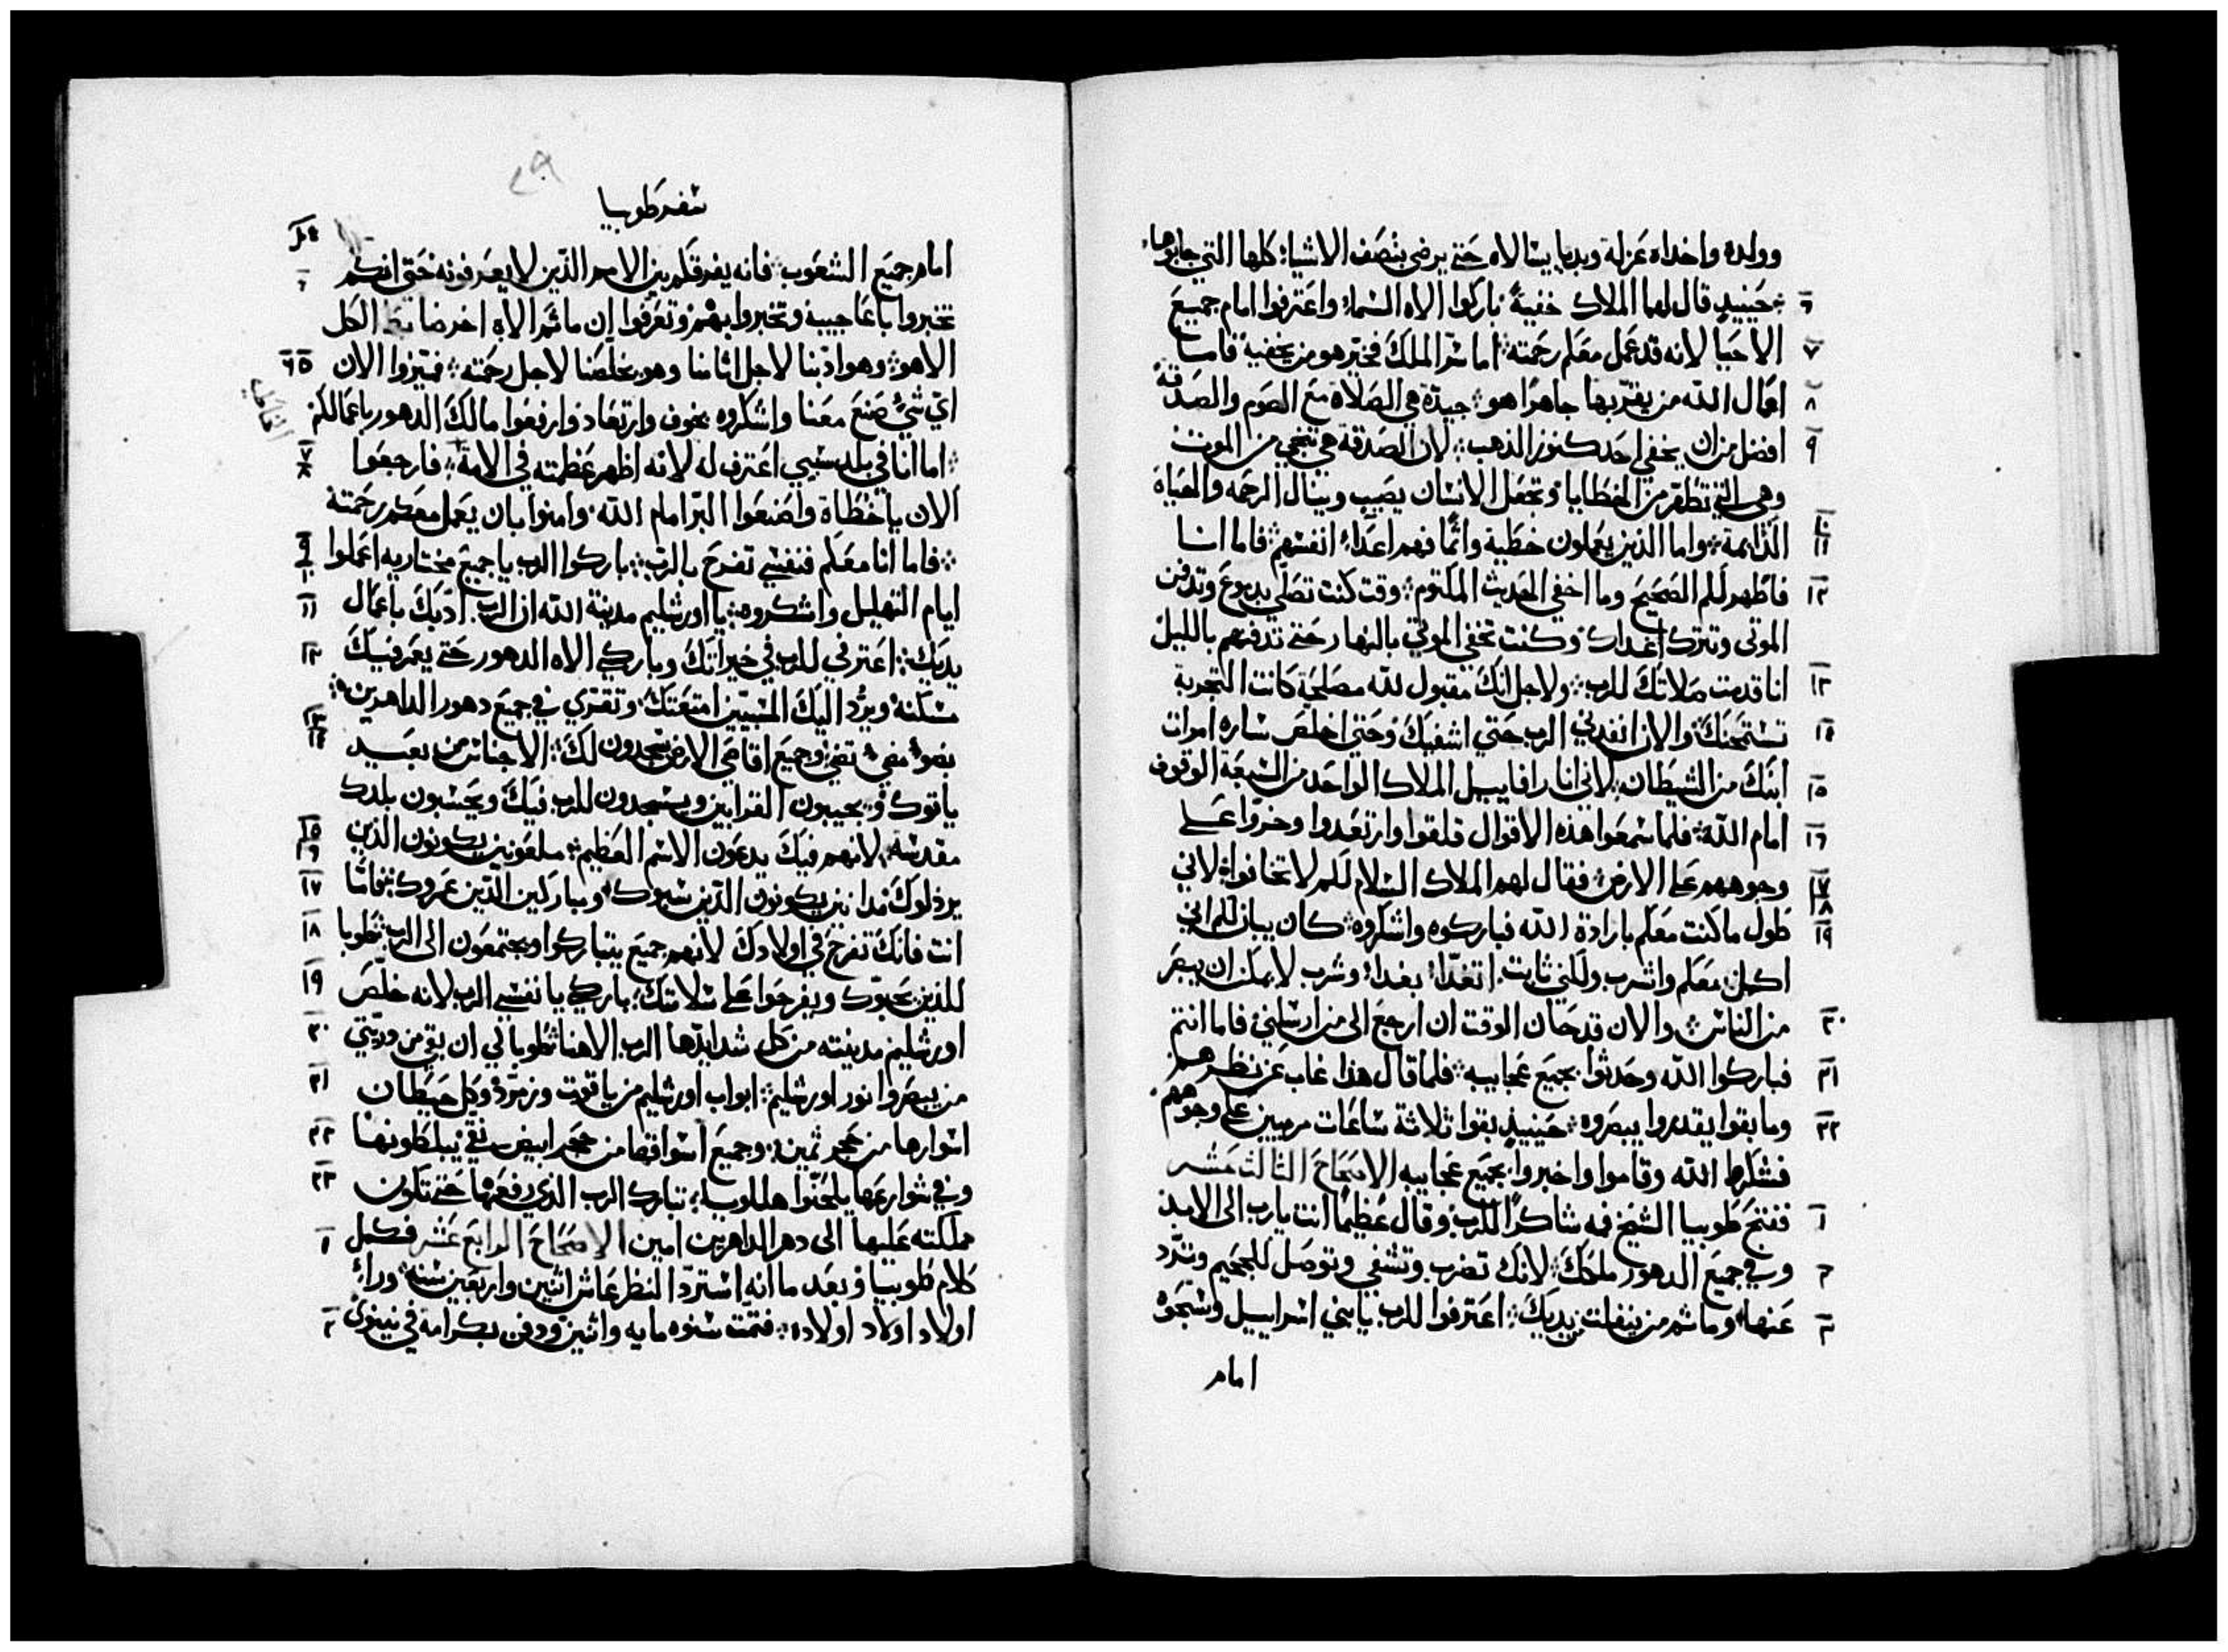 وولده واخداه عزلة وبدا يسالاه حتى يرضى بنصف الاشياء كلها التي جابوها
٦ حينيذ قال لهما الملاك خفية باركوا الاه السماء واعترفوا امام جميع
٧ الاحيا لانه قد عمل معكم رحمته اما سر الملك فخير هو من يخفيه فاما
٨ اعمال الله من يقر بها جاهرا هو جيدة هي الصلاة مع الصوم والصدقة
٩ افضل من ان يخفي احد كنوز الذهب لان الصدقة هي تنجي من الموت
وهي التي تطهر من الخطايا وتجعل الانسان يصيب وينال الرحمه والحياة
١٠ ١١ الدايمة واما الذين يعملون خطية واثما فهم اعداء انفسهم فاما انا
١٢ فاظهر لكم الصحيح وما اخفي الحديث المكتوم وقت كنت تصلي بدموع وتدفن
الموتى وتترك غداك وكنت تخفي الموتى بالنهار حتى تدفنهم بالليل
١٣ انا قدمت صلاتك للرب ولاجل انك مقبول لله مصلحة كانت التجربة
١٤ تستمحنك والان انفدني الرب حتي اشفيك وحتى اخلص ساره امراة
١٥ ابنك من الشيطان لاني انا رافاييل الملاك الواحد من السبعة الوقوف
١٦ امام الله فلما سمعوا هذه الاقوال قلقوا وارتعدوا وخروا على
١٧ ١٨ وجوههم على الارض فقال لهم الملاك السلام لكم لا تخافوا لاني
١٩ طول ما كنت معكم بارادة الله فباركوه واشكروه كان يبان لكم اني
اكل معكم واشرب ولكني ثابت اتغدا بغداء وشرب لا يمكن ان يبصر
٢٠ من الناس والان قد حان الوقت ان ارجع الى من ارسلني فاما انتم
٢١ فباركوا الله وحدثوا بجميع عجايبه فلما قال هذا غاب عن نظرهم
٢٢ وما بقوا يقدروا يبصروه حينيذ بقوا ثلاثة ساعات مرميين على وجوههم
فشكروا الله وقاموا واخبروا بجميع عجايبه الاصحاح الثالث عشر
١ ففتح طوبيا الشيخ فمه شاكرا للرب وقال عظيما انت يا رب الى الابد
٢ وفي جميع الدهور ملكك لانك تضرب وتشفي وتوصل للجحيم وترد
٣ عنها وما ثم من ينفلت من يديك اعترفوا للرب يا بني اسراييل وسبحوه
امام
٢٩
سفر طوبيا
٤ امام جميع الشعوب فانه يفرقكم بين الامم الذين لا يعرفونه حتى انكم
تخبروا باعاجيبه وتخبروا بهم وتعرفوا ان ما ثم الاه اخر ضابط الكل
٥ ٦ الا هو وهو ادبنا لاجل اثامنا وهو يخلصنا لاجل رحمته فميزوا الان
اي شيء صنع معنا واشكروه بخوف وارتعاد وارفعوا مالك الدهور باعمالكم
٧ ٨ اما انا في بلد سبيي اعترف له لانه اظهر عظمته في الامة فارجعوا
الان يا خطاة واصنعوا البر امام الله وامنوا بان يعمل معكم رحمته
٩ ١٠ فاما انا معكم فنفسي تفرح بالرب باركوا الرب يا جميع مختاريه اعملوا
١١ ايام التهليل واشكروه يا اورشليم مدينة الله ان الرب ادبك باعمال
١٢ يديك اعترفي للرب في خيراتك وباركي الاه الدهور حتى يعمر فيك
مسكنه ويرد اليك المسبيين امتعتك وتقري في جميع دهور الداهرين
١٣ ١٤ بضوء مضيء تضيء وجميع اقاصي الارض يسجدون لك الاجناس من بعيد
ياتوك ويجيبون القرابين ويسجدون للرب فيك ويحسبون بلدك
١٥ ١٦ مقدسه لانهم فيك يدعون الاسم العظيم ملعونين يكونون الذين
١٧ يرذلوك مدانين يكونون الذين سبوك ومباركين الذين عمروك فاما
١٨ انت فانك تفرح في اولادك لانهم جميع يتباركوا ويجتمعون الى الرب طوبا
١٩ للذين يحبوك ويفرحوا على سلامتك باركي يا نفسي الرب لانه خلص
٢٠ اورشليم مدينته من كل شدايدها الرب الاهنا طوبا لي ان بقي من دريتي
٢١ من يبصروا نور اورشليم ابواب اورشليم من ياقوت وزمرد وكل حيطان
٢٢ اسوارها من حجر ثمين وجميع اسواقها من حجر ابيض نقي يبلطونها
٢٣ وفي شوارعها يلحنوا هللويا تبارك الرب الذي رفعها حتى تكون
١ مملكته عليها الى دهر الداهرين امين الاصحاح الرابع عشر فكمل
كلام طوبيا وبعد ما انه استرد النظر عاش اثنين واربعين سنه وراى
٢ اولاد اولاد اولاده فتمت سنوه مايه واثنين ودفن بكرامة في نينوى